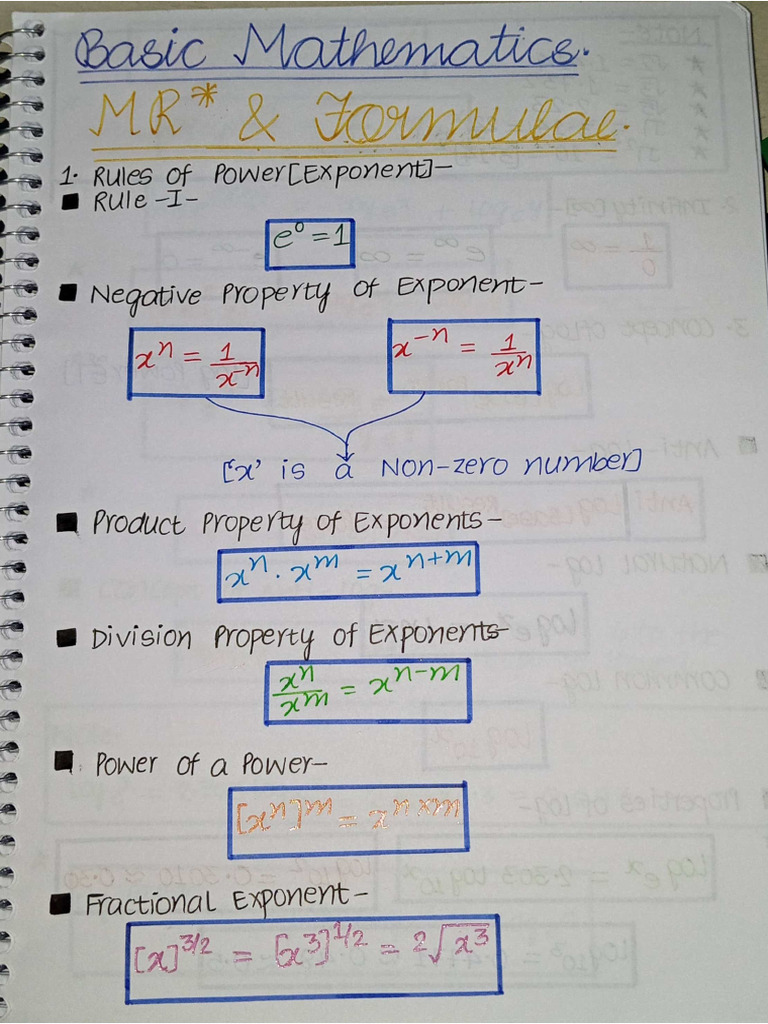 Basic Mathematics.
MR* & Formulae.
1. Rules of Power[Exponent]-
■ Rule-I-
e⁰ = 1
■ Negative Property of Exponent-
xⁿ = 1/x⁻ⁿ    x⁻ⁿ = 1/xⁿ
['x' is a Non-zero number]
■ Product Property of Exponents-
xⁿ · xᵐ = xⁿ⁺ᵐ
■ Division Property of Exponents-
xⁿ/xᵐ = xⁿ⁻ᵐ
■ Power of a Power-
[xⁿ]ᵐ = xⁿˣᵐ
■ Fractional Exponent-
[x]^3/2 = [x³]^1/2 = ²√x³